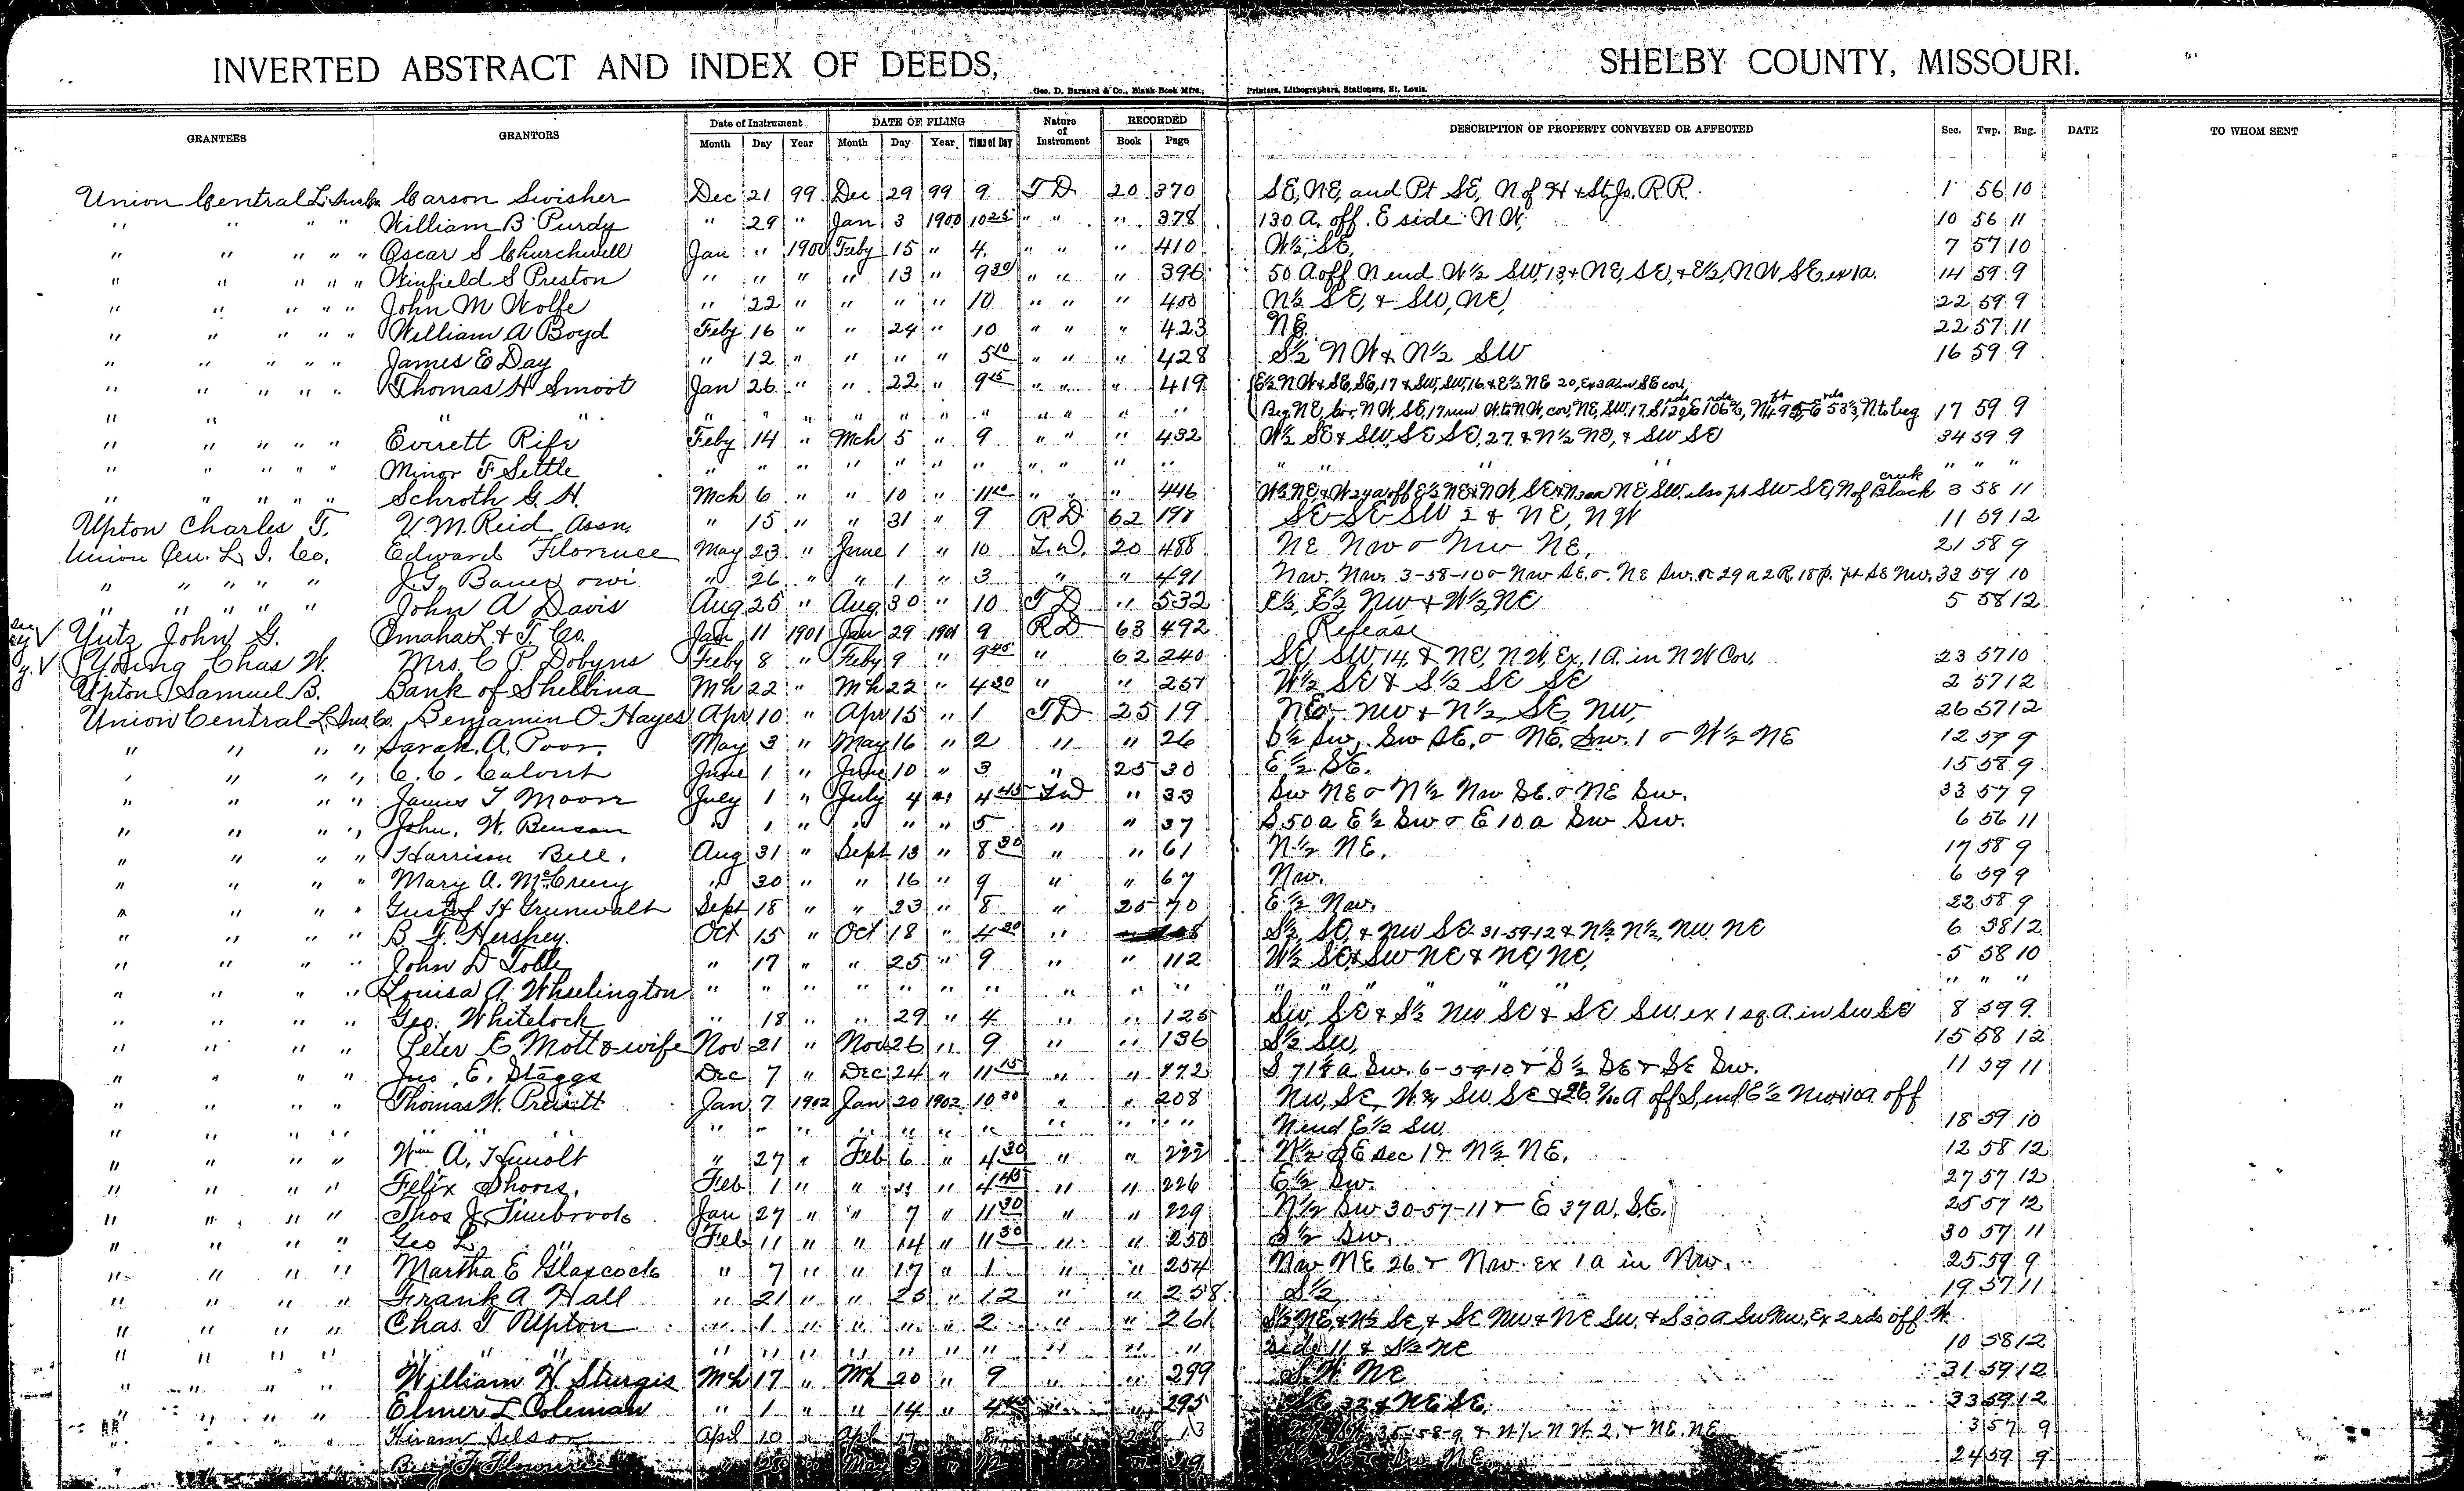 INVERTED ABSTRACT AND INDEX OF DEEDS, SHELBY COUNTY, MISSOURI.
Geo. D. Barnard & Co., Blank Book Mfrs., Printers, Lithographers, Stationers, St. Louis.
GRANTEES GRANTORS Date of Instrument DATE OF FILING Nature of Instrument RECORDED DESCRIPTION OF PROPERTY CONVEYED OR AFFECTED Sec. Twp. Rng. DATE TO WHOM SENT
Month Day Year Month Day Year Time of Day Book Page
Union Central L. Ins Co. Carson Swisher Dec 21 99 Dec 29 99 9 T D 20 370 SE, NE, and Pt SE, N of H & St. Jo. R.R. 1 56 10
" " " " William B Purdy " 29 " Jan 3 1900 10 25 " " " 378 130 A. off E side NW 10 56 11
" " " " " Oscar S Churchwell Jan " 1900 Feby 15 " 4 " " " 410 W½, SE, 7 57 10
" " " " " Winfield S Preston " " " " 13 " 9 30 " " " 396 50 A off N end W½ SW, 13, & NE, SE, & E½, NW SE, ex 1a. 14 59 9
" " " " " John M Wolfe " 22 " " " " 10 " " " 400 N½ SE, & SW, NE, 22 59 9
" " " " " William A Boyd Feby 16 " " 24 " 10 " " " 423 NE 22 57 11
" " " " " James E Day " 12 " " " " 5 10 " " " 428 S½ NW & N½ SW 16 59 9
" " " " " Thomas H Smoot Jan 26 " " 22 " 9 15 " " " 419 E½ NW & SE, SE, 17 & SW, SW, 16 & E½ NE 20, Ex 3a in SE cor,
" " " " " " " " " " " " " " Beg NE, cor, NW, SE, 17 run W. to NW, cor, NE, SW, 17 N. to beg 17 59 9
" " " " " Everett Rife Feby 14 " Mch 5 " 9 " " " 432 W½ SE & SW, SE SE, 27 & N½ NE, & SW SE 34 59 9
" " " " " Minor F Settle " " " " " " " " " " " " " " " " "
" " " " " Schroth G. H. Mch 6 " " 10 " 11 " " " 446 also pt SW SE, N of Black creek 3 58 11
Upton Charles T. U. M. Reid Assn. " 15 " " 31 " 9 R D 62 198 SE SE SW 2 & NE, NW 11 59 12
Union Cen. L. I. Co. Edward Florence May 23 " June 1 " 10 T. D. 20 488 NE NW & NW NE, 21 58 9
" " " " " J. T. Bauer " 26 " " 1 " 3 " " 491 NW. NW. 3-58-10 & NW SE. & NE SW. & 29 a 2 R 18 p. pt SE NW. 33 59 10
" " " " " John A Davis Aug 25 " Aug 30 " 10 T D " 532 E½, E½ NW & W½, NE 5 58 12
V Yutz John G. Omaha L. & T. Co. Jan 11 1901 Jan 29 1901 9 R D 63 492 Release
V Young Chas W. Mrs. C. P. Dobyns Feby 8 " Feby 9 " 9 45 " 62 240 SE, SW, 14, & NE, NW, Ex, 1 A. in NW Cor. 23 57 10
Upton Samuel B. Bank of Shelbina Mh 22 " Mh 22 " 4 30 " " 257 W½ SE & S½ SE SE 2 57 12
Union Central L. Ins Co. Benjamin O. Hayes Apr 10 " Apr 15 " 1 T D 25 19 NE NW & N½ SE, NW, 26 57 12
" " " " Sarah. A. Poor. May 3 " May 16 " 2 " " 26 S½ SW, SW SE. & NE. SW. 1 & W½ NE 12 57 9
" " " " C. C. Calvert June 1 " June 10 " 3 " 25 30 E½ SE. 15 58 9
" " " " James T Moore July 1 " July 4 " 4 45 T D " 33 SW NE & N½ NW SE. & NE SW. 33 57 9
" " " " John. W. Benson " 1 " " " " 5 " " 37 S 50 a E½ SW & E 10 a SW SW. 6 56 11
" " " " Harrison Bell. Aug 31 " Sept 13 " 8 30 " " 61 N½ NE. 17 58 9
" " " " Mary A. McCreery " 30 " " 16 " 9 " " 67 NW. 6 59 9
" " " " Gustof H Grunwalt Sept 18 " " 23 " 8 " 25 70 E½ NW. 22 58 9
" " " " B. F. Hershey. Oct 15 " Oct 18 " 4 30 " S½ SE, & NW SE. 31-59-12 & N½ N½, NW NE 6 58 12
" " " " John D Tolle " 17 " " 25 " 9 " " 112 W½ SE & SW NE & NE, NE, 5 58 10
" " " " Louisa A. Wheelington " " " " " " " " " " " " " " " " "
" " " " Geo. Whitelock " 18 " " 29 " 4 " " 125 SW, SE & S½ NW SE & SE SW. ex 1 sq. A. in SW SE 8 59 9
" " " " Peter E Mott & wife Nov 21 " Nov 26 " 9 " " 136 S½ SW, 15 58 12
" " " " Jno. E. Staggs Dec 7 " Dec 24 " 11 15 " " 172 S 71 a SW. 6-59-10 & S½ SE & SE SW. 11 59 11
" " " " Thomas W. Prewitt Jan 7 1902 Jan 20 1902 10 30 " " 208 NW, SE, SW. SE A off S, end E½ NW & 10a off
" " " " " " " " " " " " " " " N end E½ SW. 18 59 10
" " " " Wm A. Humolt " 27 " Feb 6 " 4 30 " " 222 N½ SE Sec 1 & N½ NE. 12 58 12
" " " " Felix Shores. Feb 1 " " " " 4 45 " " 226 E½ SW. 27 57 12
" " " " Thos J. Timbrook Jan 27 " " 7 " 11 30 " " 229 N½ SW 30-57-11 & E 37 a. SE. 25 57 12
" " " " Geo L. " Feb 11 " " 14 " 11 30 " " 250 S½ SW. 30 57 11
" " " " Martha E Glascock " 7 " " 17 " 1 " " 254 NW NE 26 & NW. ex 1 a in NW. 25 59 9
" " " " Frank A Hall " 21 " " 25 " 12 " " 258 S½ 19 57 11
" " " " Chas. T Upton " 1 " " " " 2 " " 261 S½ NE, & N½ SE, & SE NW & NE SW. & S 30 a SW NW, Ex 2 rds off W.
" " " " " " " " " " " " " " " " side 11 & S½ NE 10 58 12
" " " " William H Sturgis Mch 17 " Mh 20 " 9 " " 299 SW NE 31 59 12
" " " " Elmer L Coleman " 1 " " 14 " " " 295 SE 32 & NE SE. 33 59 12
" " " " Hiram April 10 " Apl 17 " 8 13 35-58-9 & N½ NW 2, & NE, NE 3 57 9
" " " " Benj F. " " May 3 " 12 " " 19 NE. 24 59 9